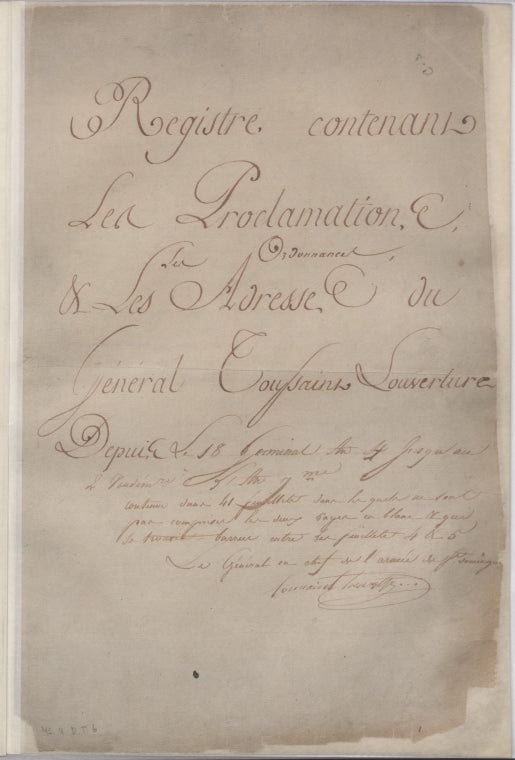 Registre contenant
Les Proclamations,
Les Ordonnances,
& Les Adresses du
Général Toussaint Louverture
Depuis Le 18 Germinal An 4 Jusqu'au
2 Vendem.re An 7.me
contenue dans 41 feuillets dans lesquels ne sont
pas comprises les deux pages en blanc & qui
se trouvent barrées entre les feuillets 4 & 5
Le Général en chef de l'armée de St Domingue
Toussaint Louverture